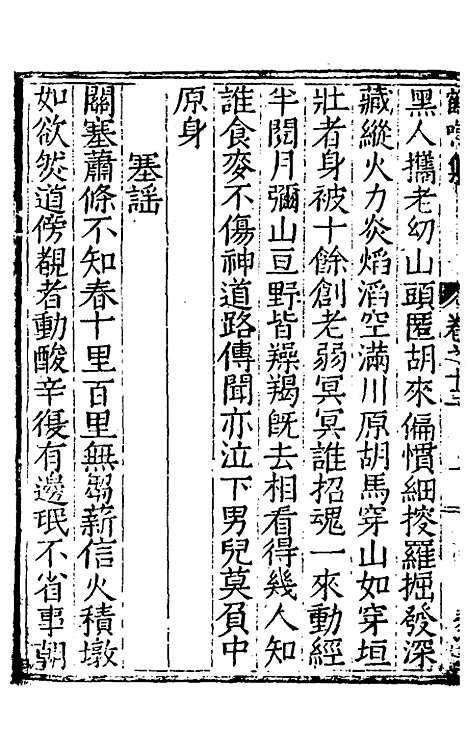 黑人攜老幼山頭匿胡來偏慣細搜羅掘發深
藏縱火力炎熖滔空滿川原胡馬穿山如穿垣
壯者身被十餘創老弱冥冥誰招魂一來動經
半閱月彌山亘野皆羶羯旣去相看得幾人知
誰食麥不傷神道路傳聞亦泣下男兒莫負中
原身
塞謡
關塞蕭條不知春十里百里無芻薪信火積墩
如欲然道傍覩者動酸辛復有邊珉不省事朝